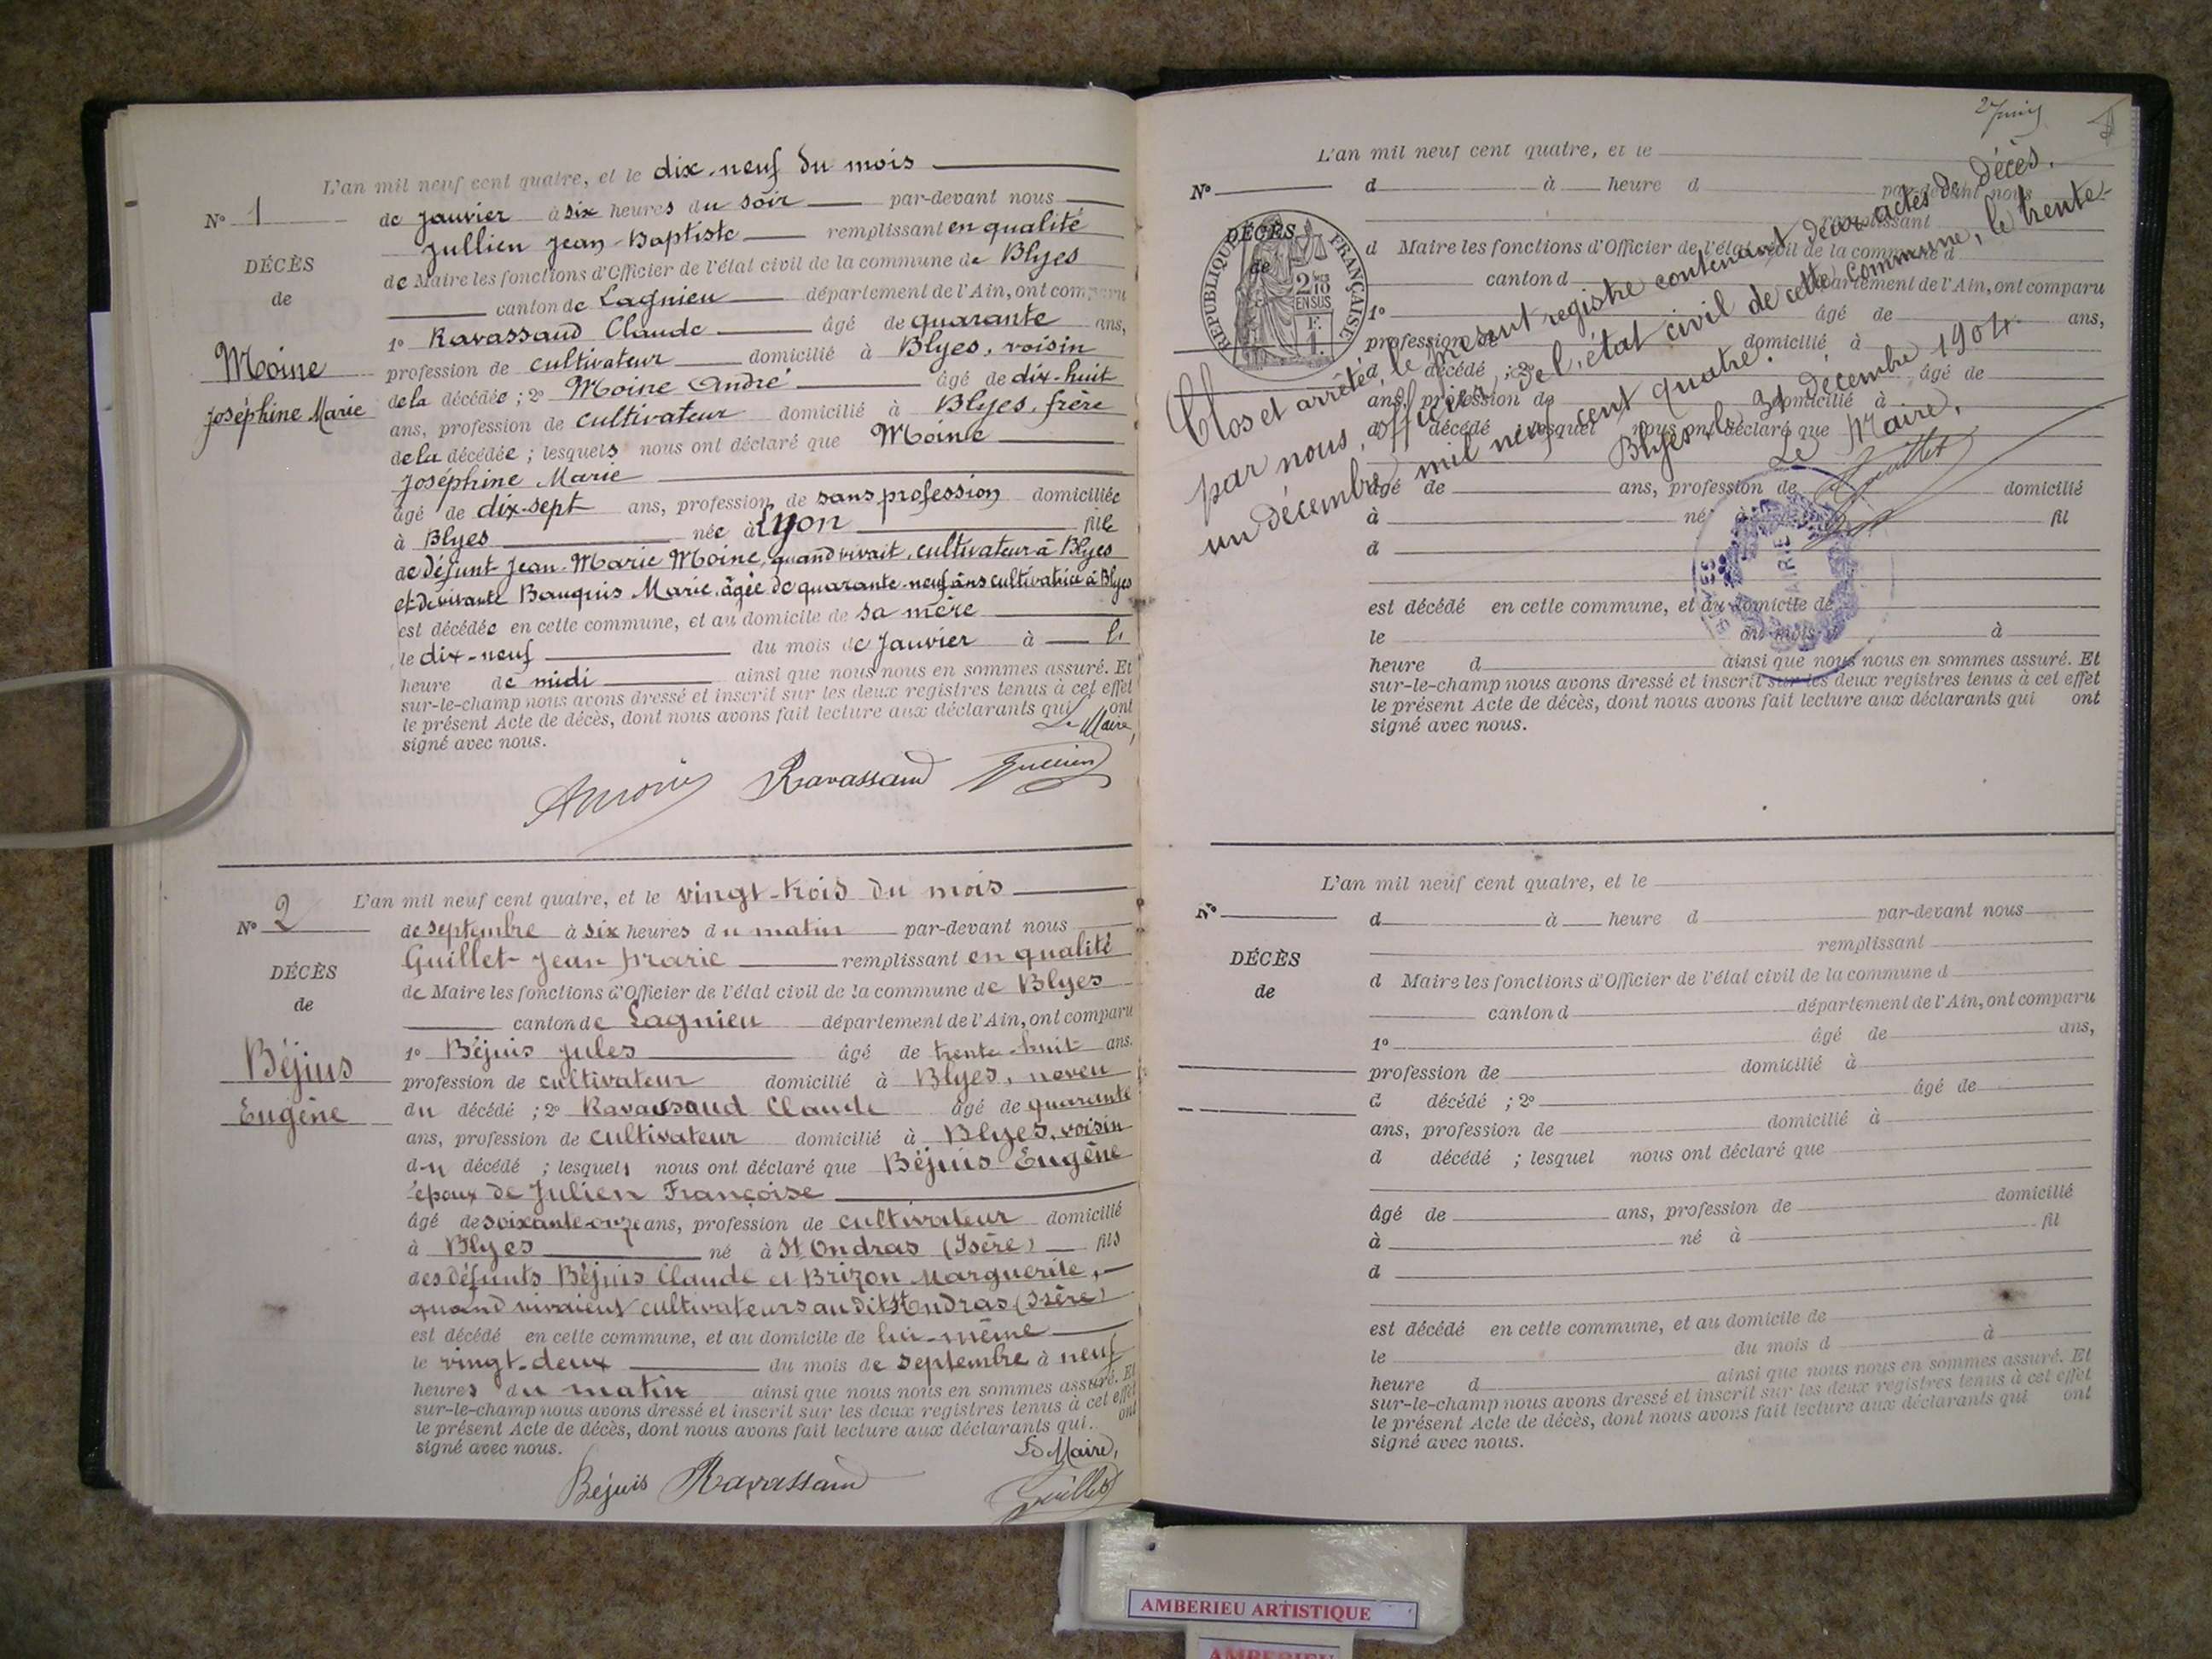 L'an mil neuf cent quatre, et le dix-neuf du mois
N° 1
de Janvier à six heures du soir par-devant nous
Jullien Jean-Baptiste remplissant en qualité
DÉCÈS
de Maire les fonctions d'Officier de l'état civil de la commune de Blyes
de
canton de Lagnieu département de l'Ain, ont comparu
1° Ravassaud Claude âgé de quarante ans,
Moine
profession de cultivateur domicilié à Blyes, voisin
Joséphine Marie
de la décédée ; 2° Moine André âgé de dix-huit
ans, profession de cultivateur domicilié à Blyes, frère
de la décédée ; lesquels nous ont déclaré que Moine
Joséphine Marie
âgé de dix-sept ans, profession de sans profession domiciliée
à Blyes née à Lyon fille
de défunt Jean-Marie Moine, quand vivait, cultivateur à Blyes
et de vivante Bauquis Marie, âgée de quarante-neuf ans cultivatrice à Blyes
est décédée en cette commune, et au domicile de sa mère
le dix-neuf du mois de Janvier à l'
heure de midi ainsi que nous nous en sommes assuré. Et
sur-le-champ nous avons dressé et inscrit sur les deux registres tenus à cet effet
le présent Acte de décès, dont nous avons fait lecture aux déclarants qui ont
signé avec nous.
Le Maire,
Ravassaud Jullien
L'an mil neuf cent quatre, et le vingt-trois du mois
N° 2
de septembre à six heures du matin par-devant nous
Guillet Jean Marie remplissant en qualité
DÉCÈS
de Maire les fonctions d'Officier de l'état civil de la commune de Blyes
de
canton de Lagnieu département de l'Ain, ont comparu
1° Béjuis Jules âgé de trente-huit ans.
Béjuis
profession de cultivateur domicilié à Blyes, neveu
Eugène
du décédé ; 2° Ravassaud Claude âgé de quarante
ans, profession de cultivateur domicilié à Blyes, voisin
du décédé ; lesquels nous ont déclaré que Béjuis Eugène
époux de Julien Françoise
âgé de soixante-onze ans, profession de cultivateur domicilié
à Blyes né à St Ondras (Isère) fils
des défunts Béjuis Claude et Brizon Marguerite,
quand vivaient cultivateurs au dit St Ondras (Isère)
est décédé en cette commune, et au domicile de lui-même
le vingt-deux du mois de septembre à neuf
heures du matin ainsi que nous nous en sommes assuré. Et
sur-le-champ nous avons dressé et inscrit sur les deux registres tenus à cet effet
le présent Acte de décès, dont nous avons fait lecture aux déclarants qui ont
signé avec nous.
Le Maire,
Béjuis Ravassaud Guillet
L'an mil neuf cent quatre, et le
N°
d à heure d par-devant nous
remplissant
DÉCÈS
de
RÉPUBLIQUE FRANÇAISE
2/10 EN SUS
F. 1.
d Maire les fonctions d'Officier de l'état civil de la commune d
canton d département de l'Ain, ont comparu
1° âgé de ans,
profession de domicilié à
d décédé ; 2° âgé de
ans, profession de domicilié à
d décédé ; lesquel nous ont déclaré que
âgé de ans, profession de domicilié
à né à fil
d
est décédé en cette commune, et au domicile de
le du mois d à
heure d ainsi que nous nous en sommes assuré. Et
sur-le-champ nous avons dressé et inscrit sur les deux registres tenus à cet effet
le présent Acte de décès, dont nous avons fait lecture aux déclarants qui ont
signé avec nous.
Clos et arrêté, le présent registre contenant deux actes de décès,
par nous, officier de l'état civil de cette commune, le trente-
un décembre mil neuf cent quatre.
Blyes, le 31 décembre 1904
Le Maire,
Guillet
MAIRIE
L'an mil neuf cent quatre, et le
N°
d à heure d par-devant nous
remplissant
DÉCÈS
de
d Maire les fonctions d'Officier de l'état civil de la commune d
canton d département de l'Ain, ont comparu
1° âgé de ans,
profession de domicilié à
d décédé ; 2° âgé de
ans, profession de domicilié à
d décédé ; lesquel nous ont déclaré que
âgé de ans, profession de domicilié
à né à fil
d
est décédé en cette commune, et au domicile de
le du mois d à
heure d ainsi que nous nous en sommes assuré. Et
sur-le-champ nous avons dressé et inscrit sur les deux registres tenus à cet effet
le présent Acte de décès, dont nous avons fait lecture aux déclarants qui ont
signé avec nous.
AMBERIEU ARTISTIQUE
AMBERIEU